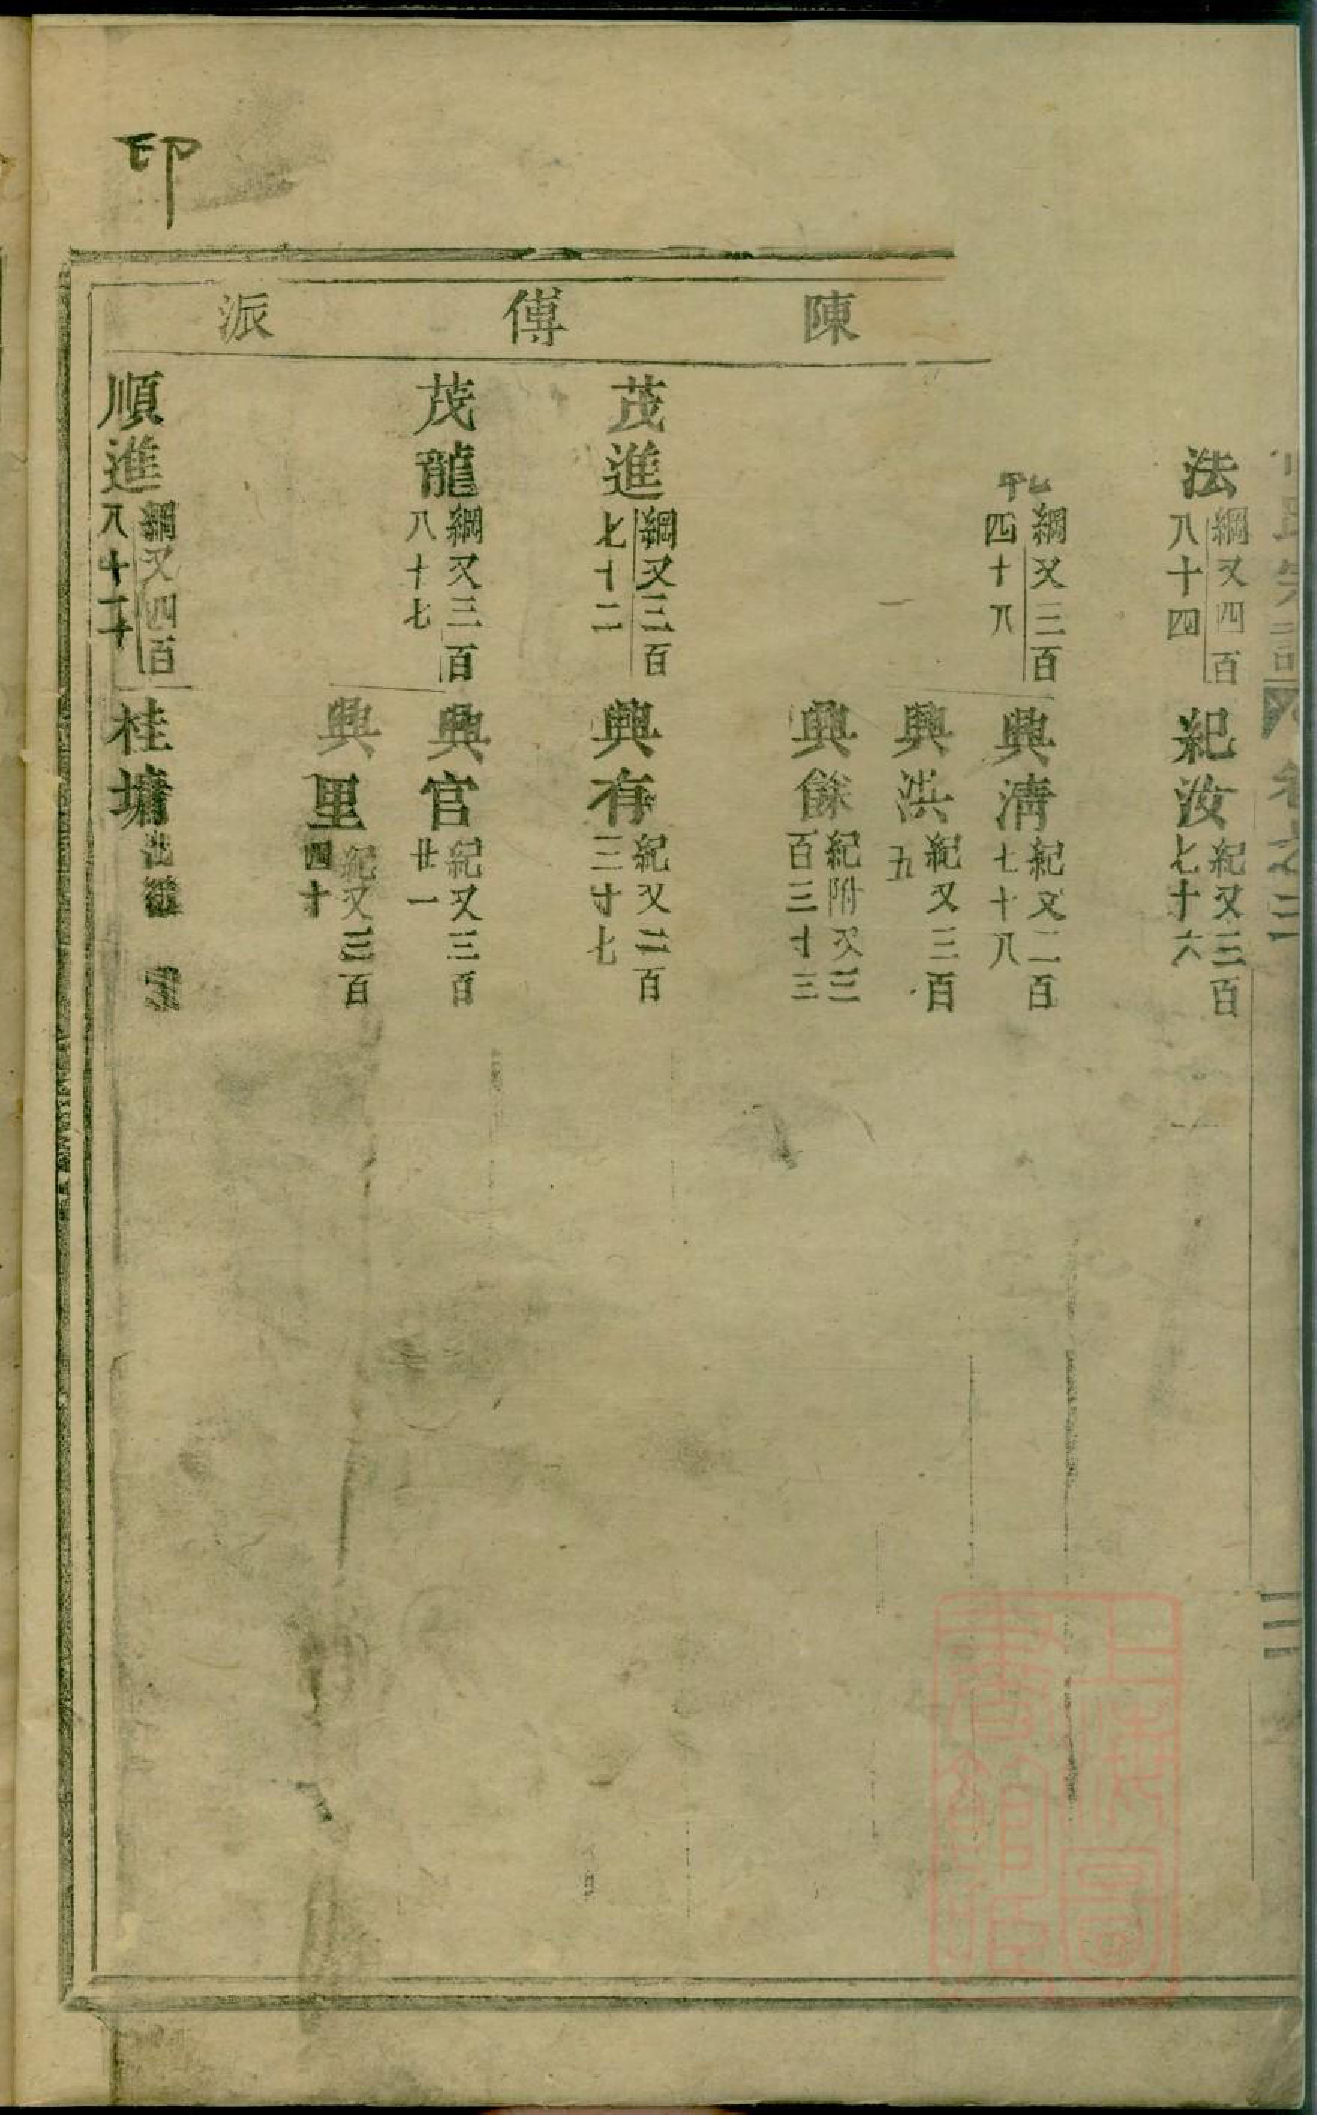 印
陳傅派
法 綱又四百八十四
紀汝 紀又三百七十六
綱又三百四十八
興清 紀又二百七十八
興洪 紀又三百五
興餘 紀附又三百三十三
茂進 綱又三百七十二
興存 紀又二百三十七
茂龍 綱又三百八十七
興官 紀又三百廿一
興里 紀又三百四十
順進 綱又四百八十二
桂墉 出繼
卷之二
三
上海圖書館藏